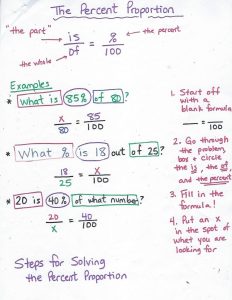 The Percent Proportion
"the part"
is / of = % / 100
the percent
the whole
Examples
* What is 85% of 80?
x / 80 = 85 / 100
* What % is 18 out of 25?
18 / 25 = x / 100
* 20 is 40% of what number?
20 / x = 40 / 100
Steps for Solving
the Percent Proportion
1. Start off
with a
blank formula
__ = __
2. Go through
the problem,
box + circle
the is, the of,
and the percent
3. Fill in the
formula!
4. Put an x
in the spot of
what you are
looking for